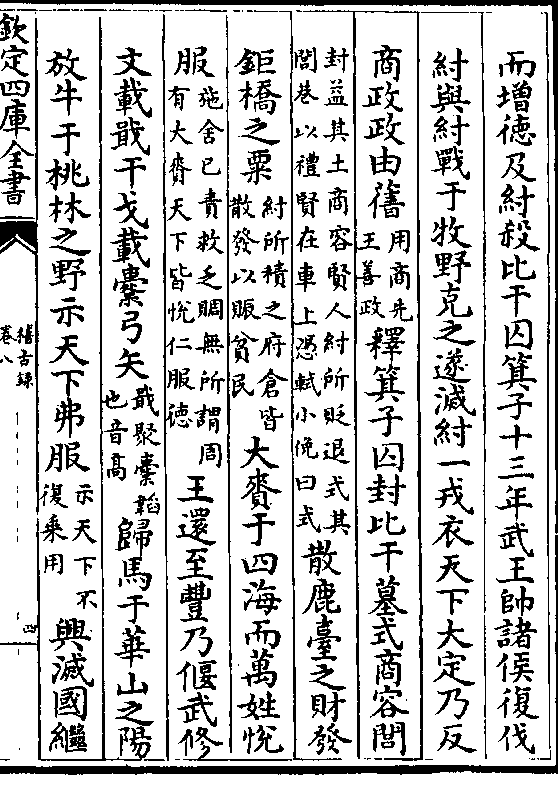 而增德及紂殺比干囚箕子十三年武王帥諸侯復伐
紂與紂戰于牧野克之遂滅紂一戎衣天下大定乃反
商政政由舊用商先王善政釋箕子囚封比干墓式商容閭
封益其土商容賢人紂所貶退式其閭巷以禮賢在車上憑軾小俛曰式散鹿臺之財發
鉅橋之粟紂所積之府倉皆散發以賑貧民大賚于四海而萬姓悅
服施舍已責救乏賙無所謂周有大賚天下皆悅仁服德王還至豐乃偃武修
文載戢干戈載櫜弓矢戢聚櫜韜也音高歸馬于華山之陽
放牛于桃林之野示天下弗服示天下不復乘用興滅國繼
欽定四庫全書
稽古録
卷八
四